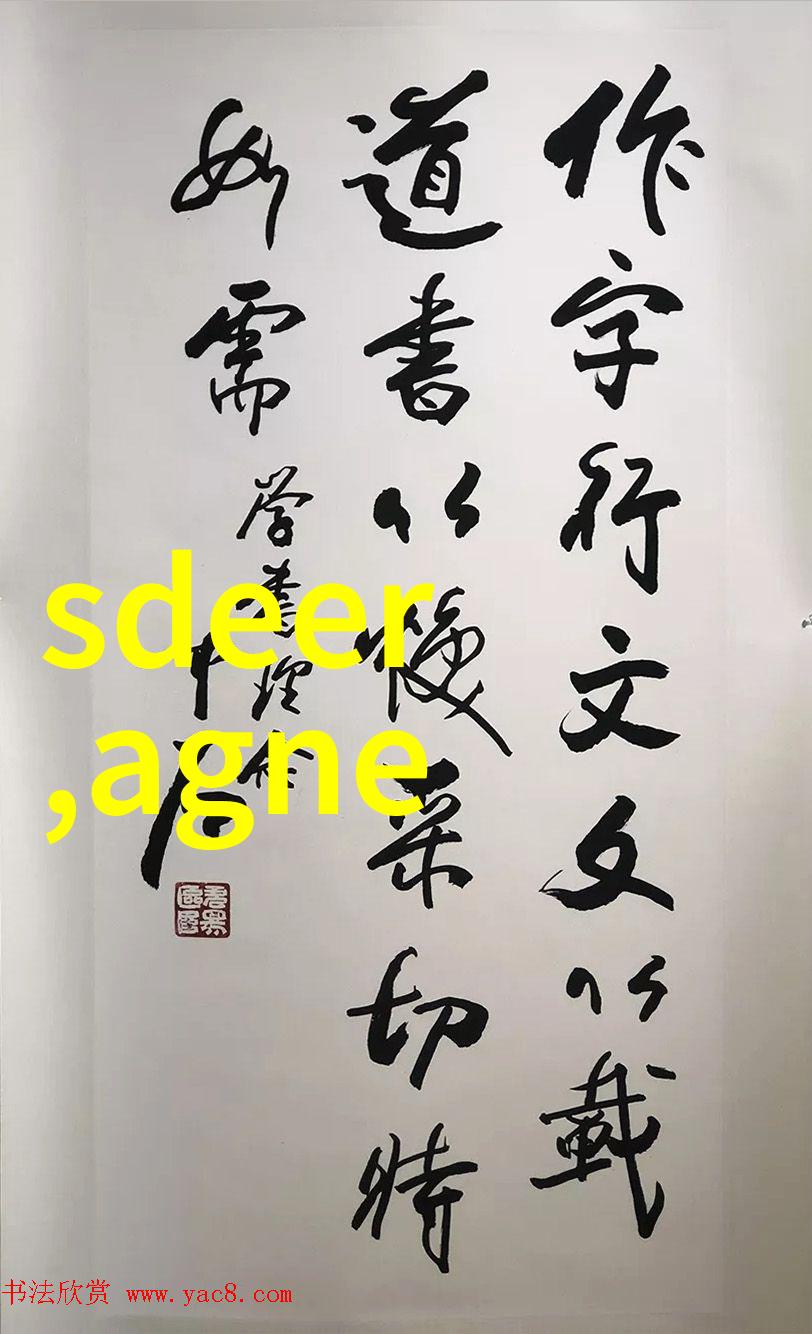 作字行文文以載
道書以煥采切時
如需
sdeer
,agne
书法欣赏 www.yac8.com